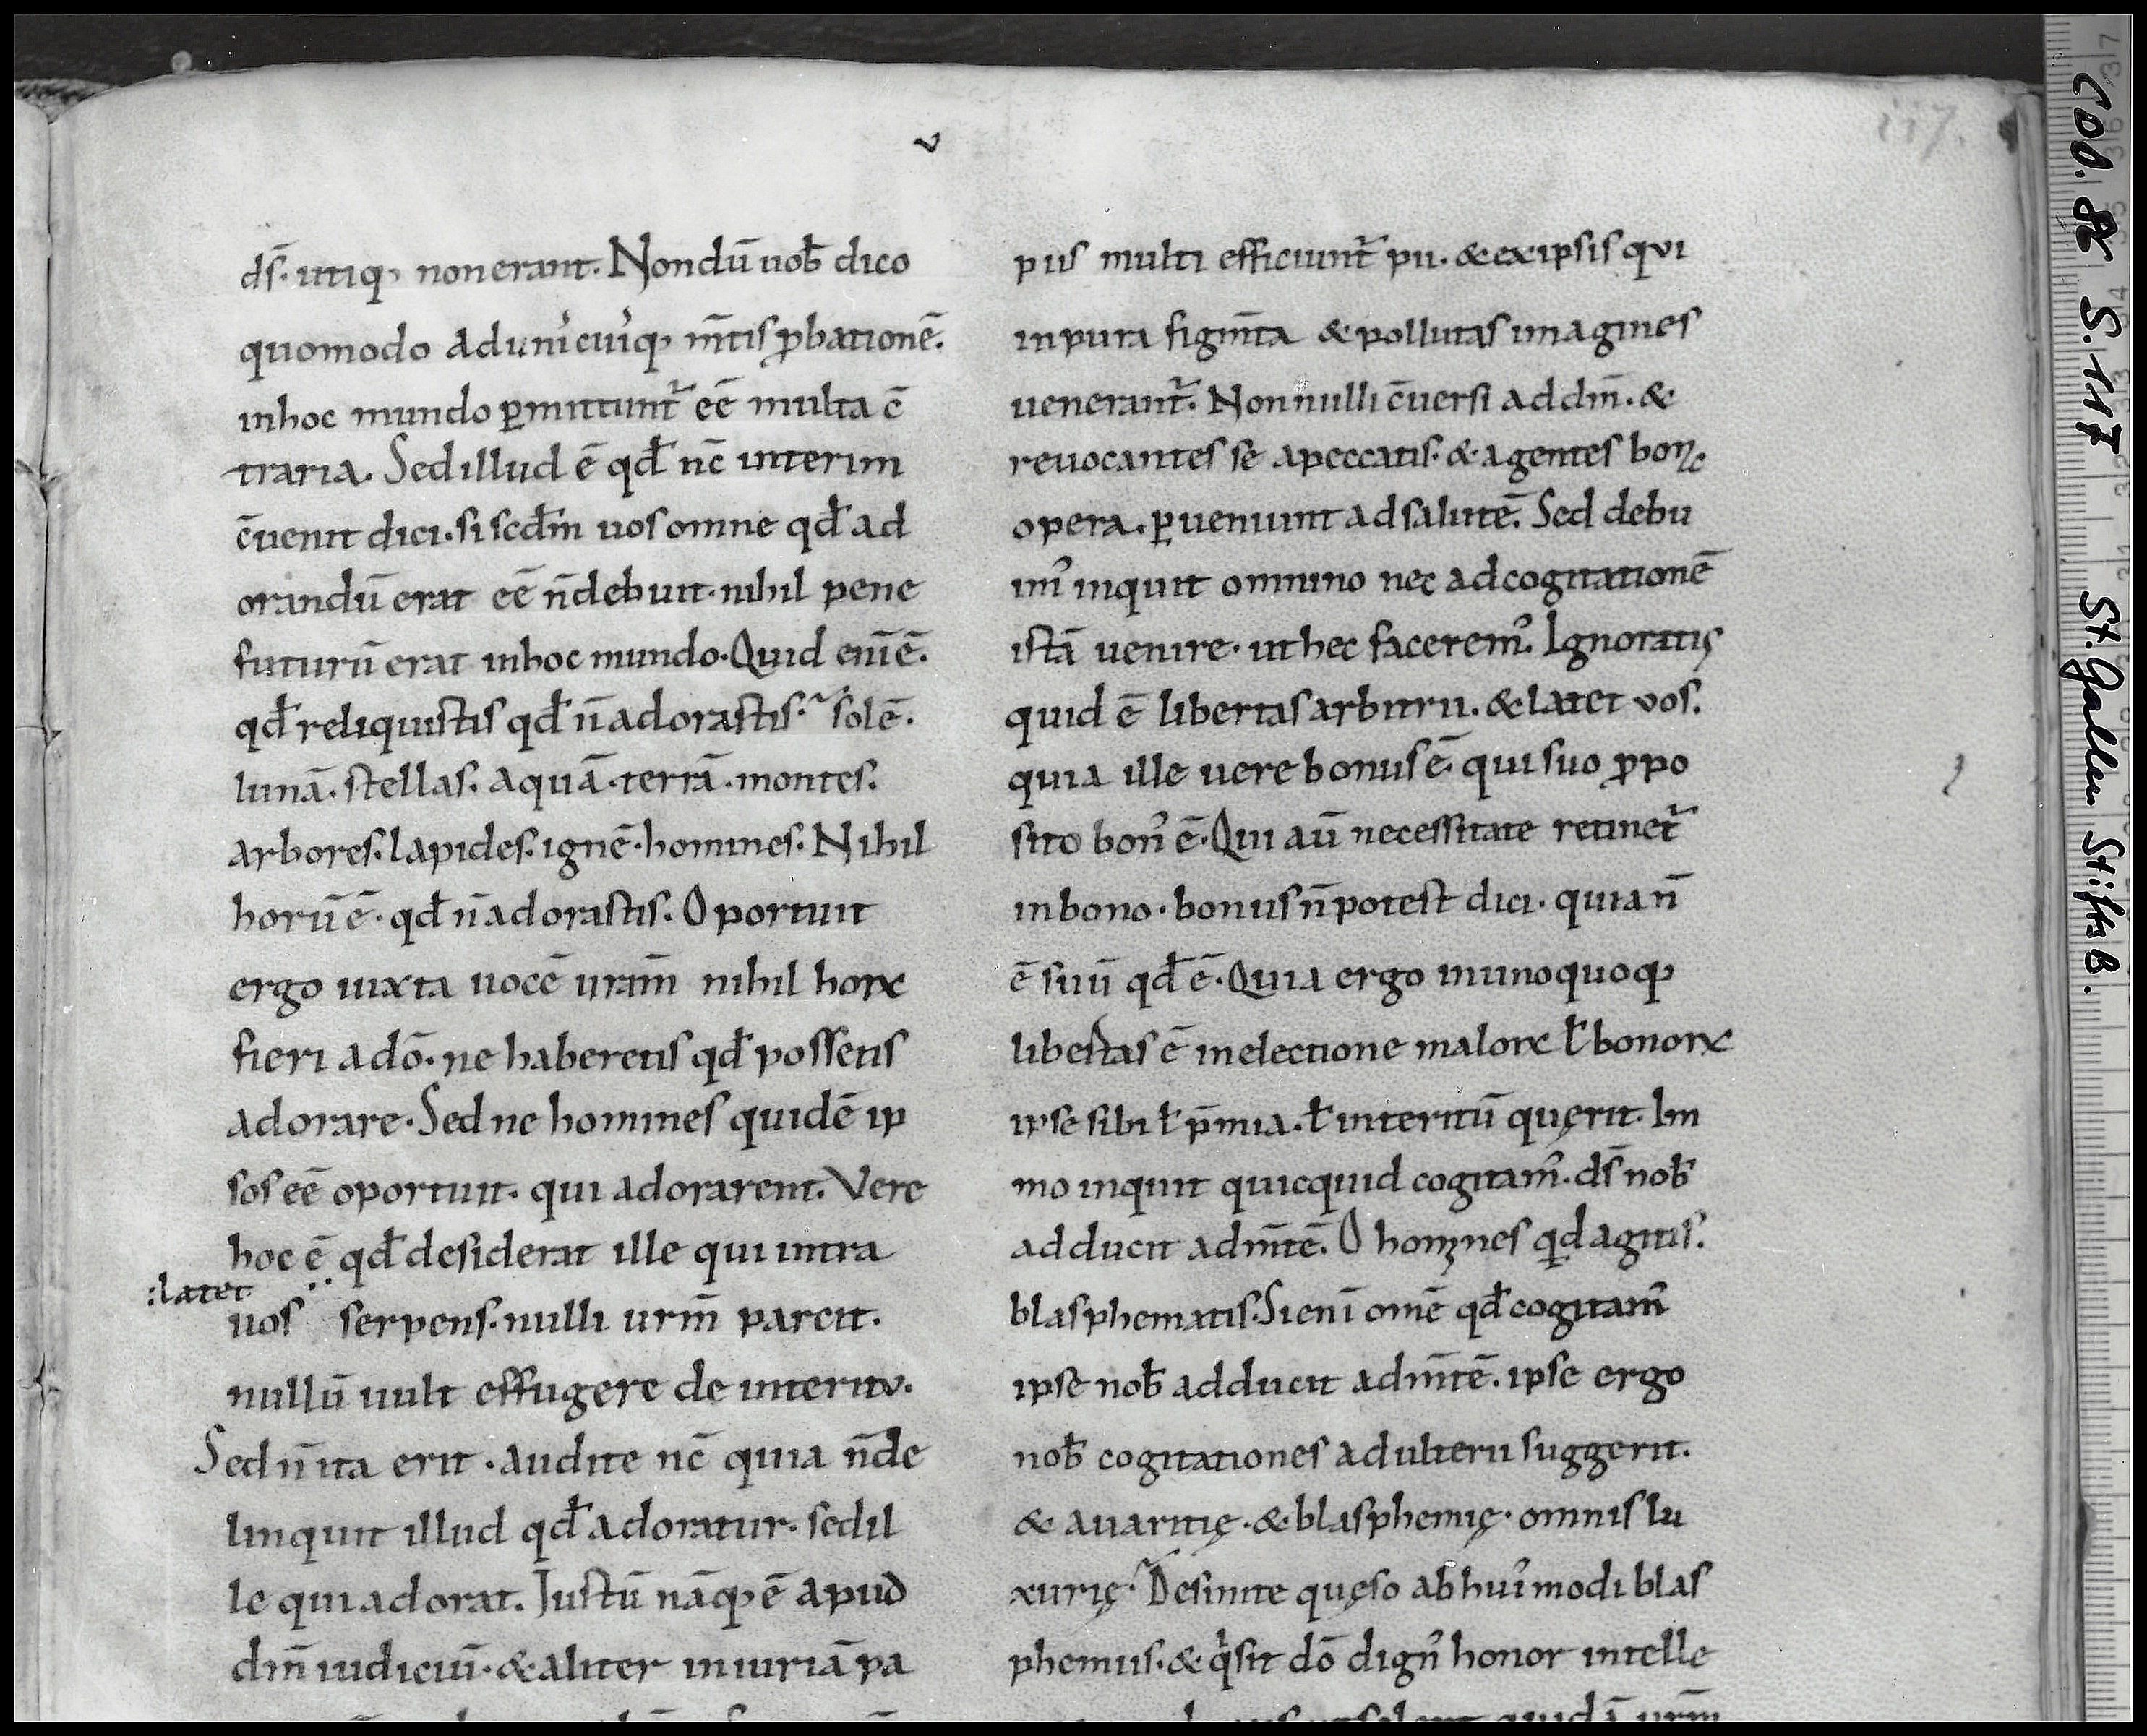 v
117.
dſ̄. utiq; non erant. Nondū uob̄ dico
quomodo ad uni'cui'q; m̄tis ꝓbationē.
in hoc mundo ꝑmittunt᷑ eē multa c̄
traria. Sed illud ē qđ nc̄ interim
c̄uenit dici. si scd̄m uos omne qđ ad
orandū erat eē n̄ debuit. nihil pene
futurū erat in hoc mundo. Quid enī ē.
qđ reliquistis qđ n̄ adorastis. solē.
lunā. stellas. aquā. terrā. montes.
arbores. lapides. ignē. homines. Nihil
horū ē. qđ n̄ adorastis. Oportuit
ergo iuxta uocē urām nihil hoꝝ
fieri a dō. ne haberetis qđ possetis
adorare. Sed ne homines quidē ip
sos eē oportuit. qui adorarent. Vere
hoc ē qđ desiderat ille qui intra
:latet
uos serpens. nulli urm̄ parcit.
nullū uult effugere de interitv.
Sed n̄ ita erit. audite nc̄ quia n̄ de
linquit illud qđ adoratur. sed il
le qui adorat. Justū nāq; ē apud
dm̄ iudiciū. & aliter iniuriā pa
pus multi efficiunt᷑ pii. & ex ipsis qvi
inpura figm̄ta & pollutas imagines
uenerant᷑. Nonnulli c̄uersi ad dm̄. &
reuocantes se a peccatis. & agentes bona
opera. ꝑueniunt ad salutē. Sed debu
imꝰ inquit omnino nec ad cogitationē
istā uenire. ut hec faceremꝰ. Ignoratis
quid ē libertas arbitrii. & latet vos.
quia ille uere bonus ē. qui suo ꝓpo
sito bonꝰ ē. Qui aū necessitate retinet᷑
in bono. bonus n̄ potest dici. quia n̄
ē suū qđ ē. Quia ergo in unoquoq;
libertas ē in electione maloꝝ ł bonoꝝ
ipse sibi ł p̄mia. ł interitū quęrit. Im
mo inquit quicquid cogitamꝰ. dſ̄ nob̄
adducit ad m̄tē. O homines qd agitis.
blasphematis. Si enī omē qđ cogitamꝰ
ipse nob̄ adducit ad m̄tē. ipse ergo
nob̄ cogitationes adulterii suggerit.
& avaritię. & blasphemię. omnis lu
xurię. Desinite quęso ab huiꝰmodi blas
phemiis. & q' sit dō dignꝰ honor intelle
Cod. 86 S. 117 St. Gallen StiftsB.